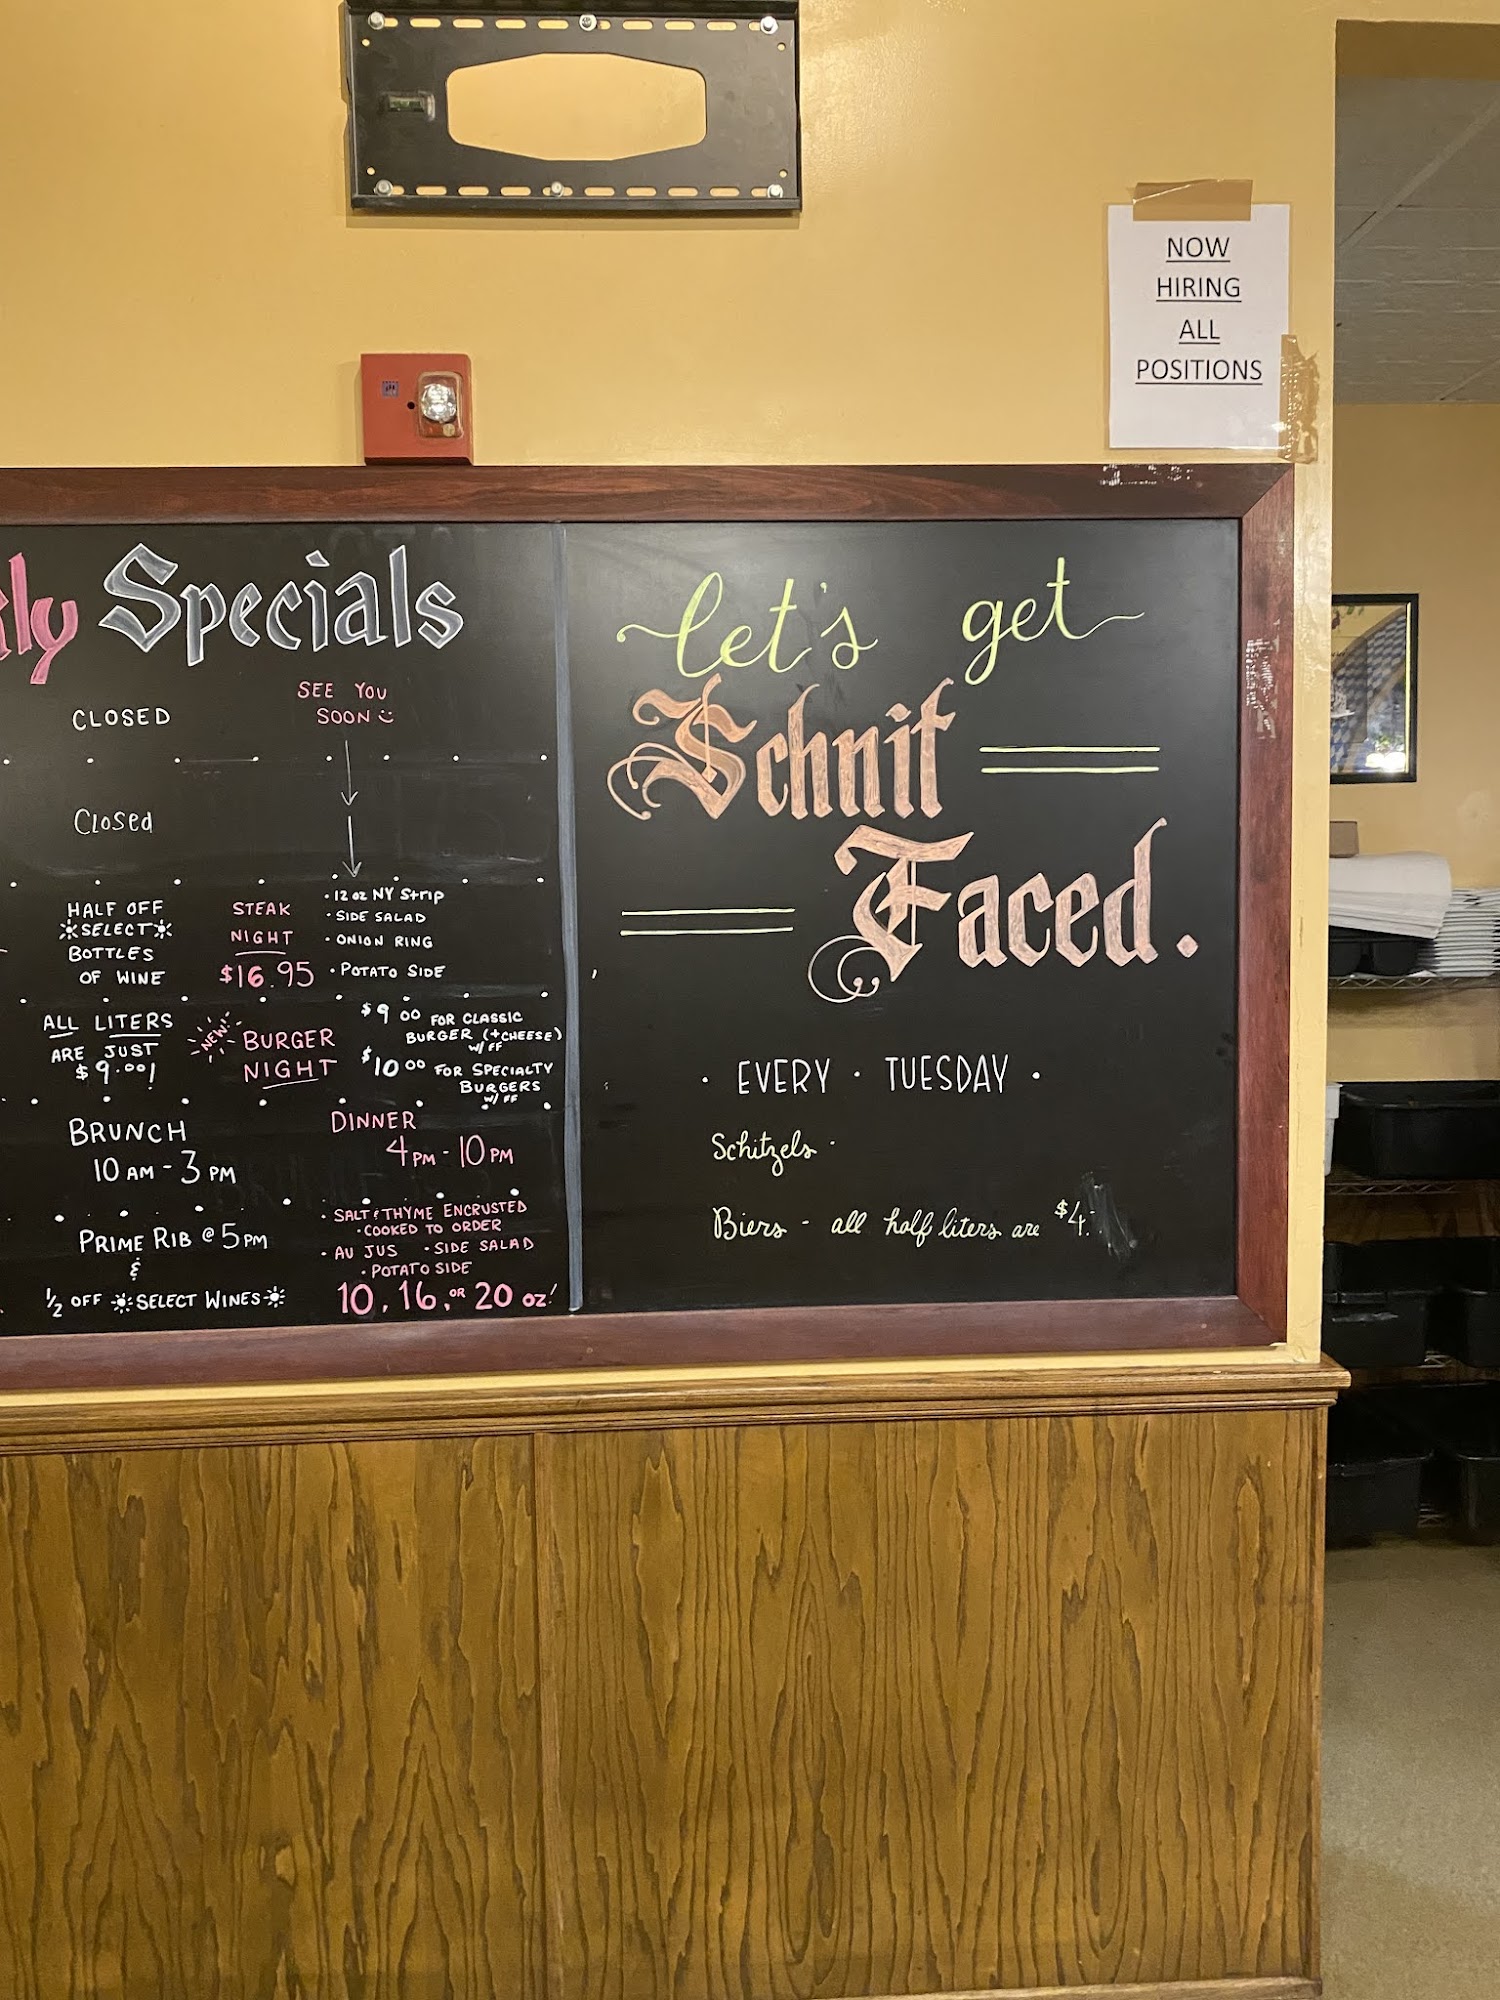 NOW
HIRING
ALL
POSITIONS
Specials
CLOSED
SEE YOU
SOON
Closed
HALF OFF
SELECT
BOTTLES
OF WINE
STEAK
NIGHT
$16.95
• 12 oz NY Strip
• SIDE SALAD
• ONION RING
• POTATO SIDE
ALL LITERS
ARE JUST
$9.00!
NEW!
BURGER
NIGHT
$9.00 FOR CLASSIC
BURGER (+CHEESE)
W/ FF
$10.00 FOR SPECIALTY
BURGERS
W/ FF
BRUNCH
10 AM - 3 PM
DINNER
4 PM - 10 PM
PRIME RIB @ 5 PM
&
1/2 OFF SELECT WINES
• SALT & THYME ENCRUSTED
• COOKED TO ORDER
• AU JUS • SIDE SALAD
• POTATO SIDE
10, 16, OR 20 OZ!
let's get
Schnit
Faced.
• EVERY • TUESDAY •
Schitzels -
Biers - all half liters are $4.